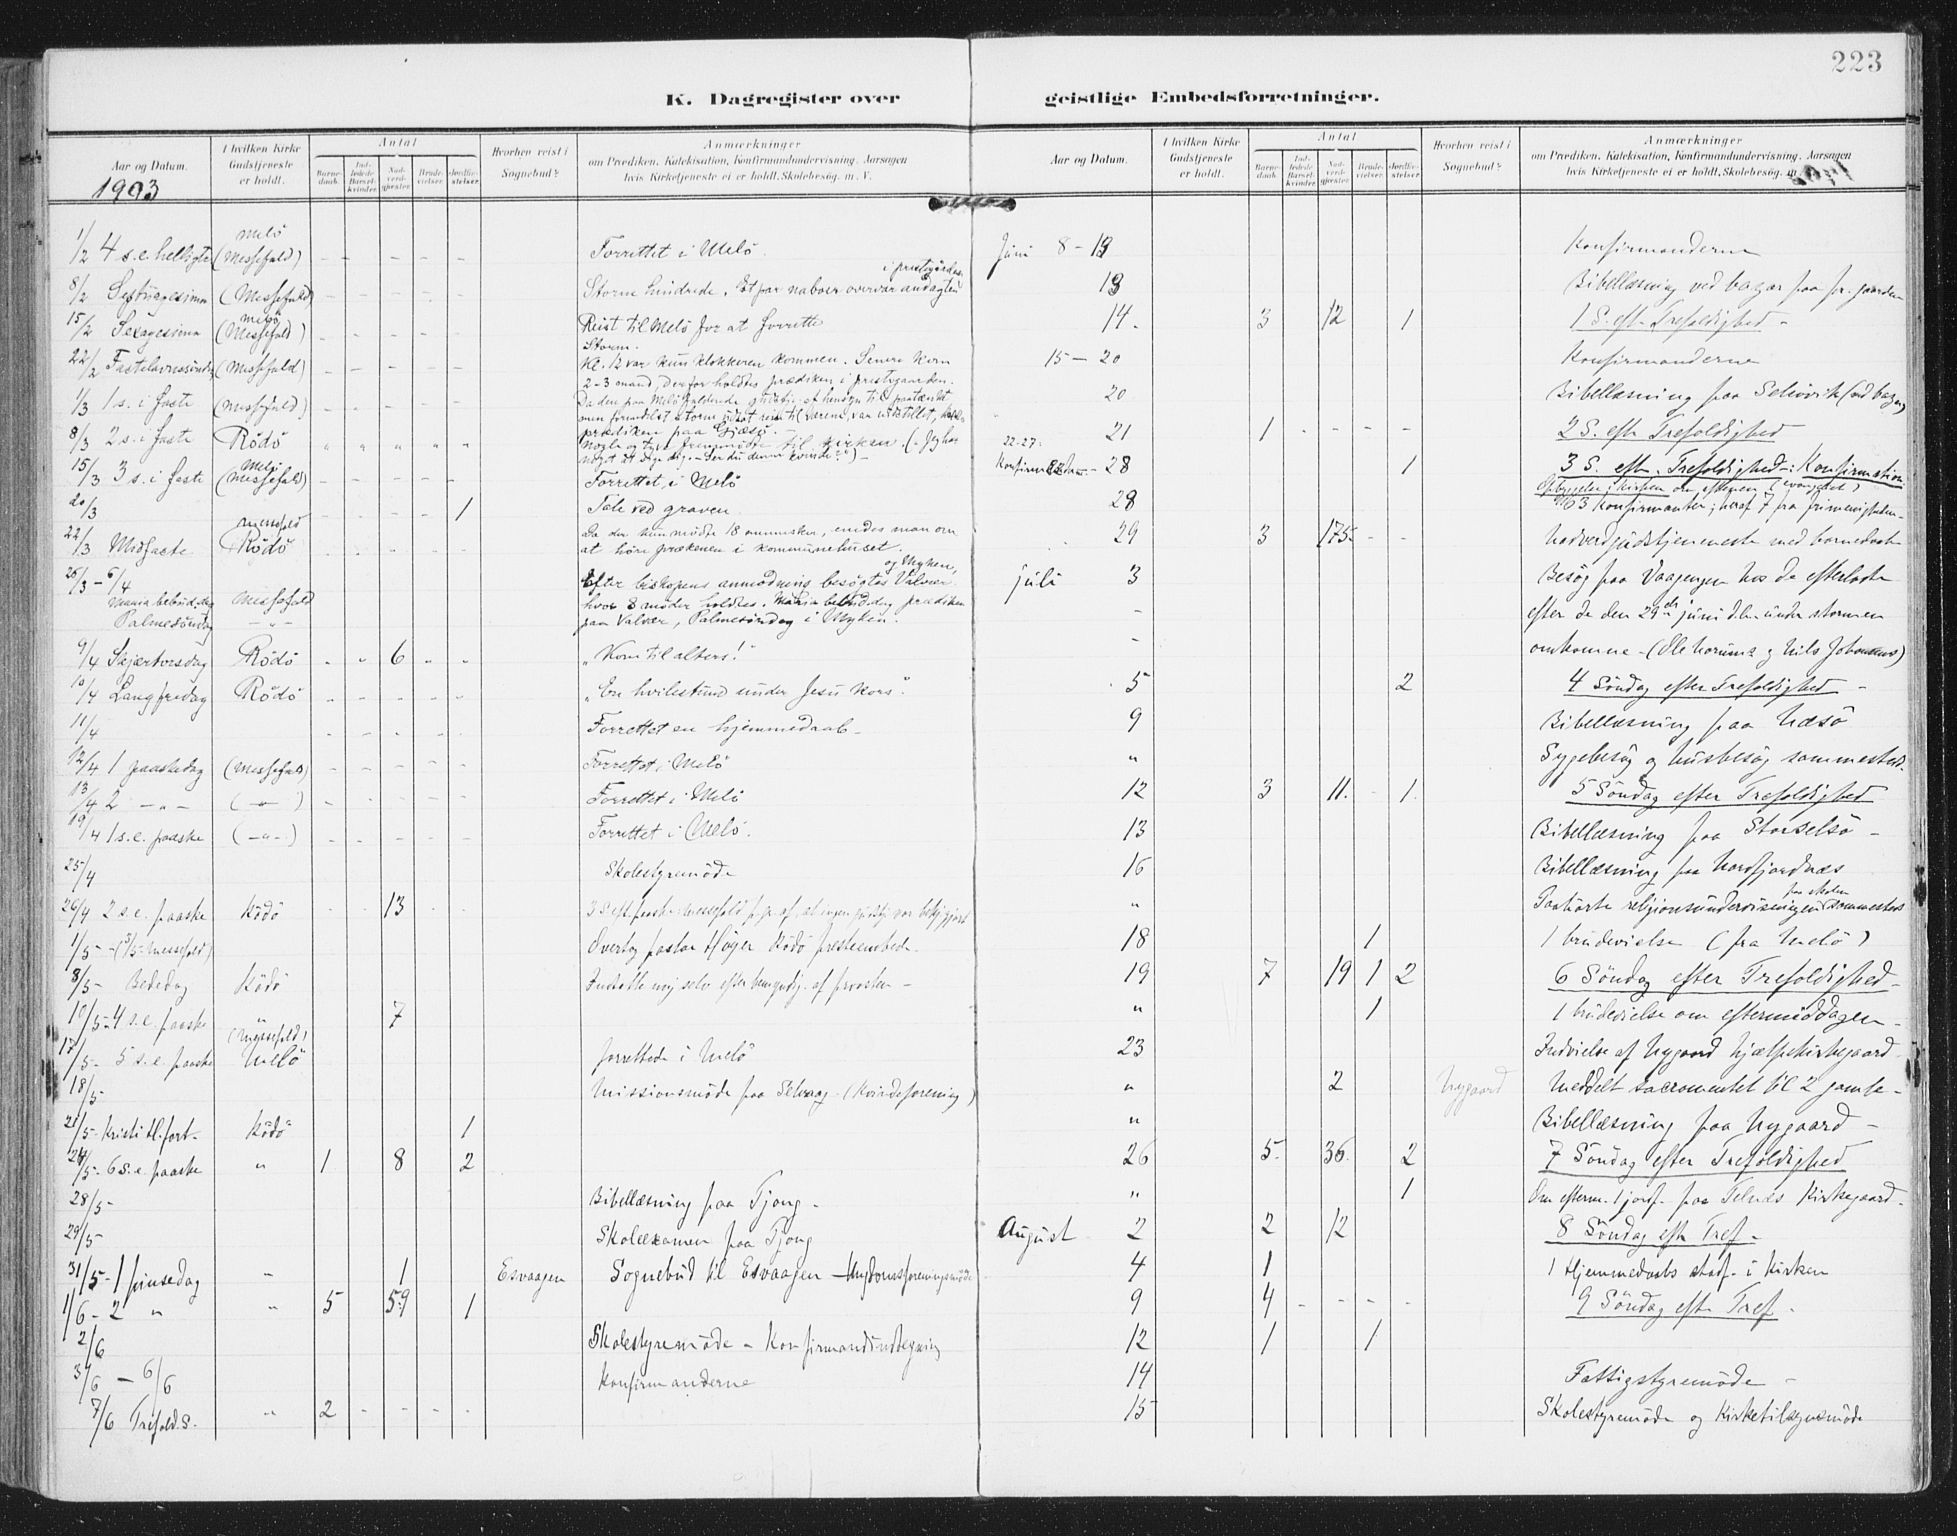 223
K. Dagregister over geistlige Embedsforretninger.
Aar og Datum. I hvilken Kirke Gudstjeneste er holdt. Antal Barnedaab. Indledede Barselkvinder. Nadverdgjester. Brudevielser. Jordfæstelser. Hvorhen reist i Sognebud? Anmærkninger om Prædiken, Katekisation, Konfirmandundervisning. Aarsagen hvis Kirketjeneste ei er holdt. Skolebesøg. m. V.
1903
1/2 4 s.e. helligtr Melö (Messefald) - - - - - Forrettet i Melö.
8/2 Septuagesima (Messefald) - - - - - Storm hindrede. Et par naboer overvar andagten i prestegården
15/2 Sexagesima Melö (Messefald) - - - - - Reist til Melö for at forrette
22/2 Fastelavnssöndag (Messefald) - - - - - Storm. Kl. 12 var kun klokkeren kommen. Senere kom
2-3 mand, derfor holdtes prædiken i prestegaarden.
1/3 1 s. i faste (Messefald) - - - - - Da den paa Melö faldende gudstj. af hensyn til paatænkt
men formedelst storm udsat reise til Værene, var indstillet,
prædiken paa Gjæsö.
8/3 2 s. i faste Rödö " " " " " Nogle og tyve fremmödte til kirken. (Jeg har
noget at sige dig. - Ser du denne kvinde?) -
15/3 3 s. i faste Melö (Messefald) - - - - - Forrettet i Melö
20/3 1 Tale ved graven.
22/3 Midfaste messefald Rödö Da der kun mödte 18 mennesker, enedes man om
at höre prækenen i kommunehuset.
25/3 - 6/4 Efter biskopens anmodning besögtes Valvær og Myken,
Maria bebud.dag Messefald hvor 8 möder holdtes. Maria bebud.dag prædiken
Palmesöndag - " - paa Valvær, Palmesöndag i Myken.
9/4 Skjærtorsdag Rödö " " 6 " " "Kom til alters!"
10/4 Langfredag Rödö - - - - - "En hvilestund under Jesu kors".
11/4 - - - - - Forrettet en hjemmedaab -
12/4 1 paaskedag (Messefald) - - - - - Forrettet i Melö
13/4 2 - " - ( - " - ) - - - - - Forrettet i Melö
19/4 1 s.e. paaske ( - " - ) - - - - - Forrettet i Melö.
25/4 Skolestyremöde
26/4 2 s.e. paaske Rödö - - 13 - - 3 S. eft. paaske messefald p.gr. af, at ingen gudstj. var bekjgjort
1/5 - (3/5 messefald) Overtog pastor Höyer Rödö presteembede.
8/5 - Bededag Rödö Indsatte mig selv efter bemyndig. af provsten -
10/5 - 4 s.e. paaske " 7
17/5 - 5 s.e. paaske (Messefald) Melö forrettede i Melö
18/5 Missionsmöde paa Selvaag - (Kvindeforening)
21/5 - Kristi H. fart - Rödö 1
24/5 - 6 s.e. paaske " 1 8 2
28/5 - Bibellæsning paa Tjong -
29/5 - Skoleexamen paa Tjong
31/5 - 1 pinsedag " 1 Esvaagen Sognebud til Esvaagen - Ungdomsforeningsmöde
1/6 - 2 " " 5 59 1
2/6 Skolestyremöde - Konfirmandindtegning
3/6 - 6/6 Konfirmanderne
7/6 Trefold.S. " 2 - - - -
Aar og Datum. I hvilken Kirke Gudstjeneste er holdt. Antal Barnedaab. Indledede Barselkvinder. Nadverdgjester. Brudevielser. Jordfæstelser. Hvorhen reist i Sognebud? Anmærkninger om Prædiken, Katekisation, Konfirmandundervisning. Aarsagen hvis Kirketjeneste ei er holdt. Skolebesøg. m
Juni 8 - 13 Konfirmanderne
13 Bibellæsning ved bazar paa pr. gaarden
14. 3 12 1 1 S. eft. Trefoldighed -
15 - 20 Konfirmanderne
20 Bibellæsning paa Selsövik (ved bazar)
21 1 - - - - 2 S. eft. Trefoldighed
22-27: Konfirmander - 28 1 3 S. eft. Trefoldighed - Konfirmation
28 63 Konfirmanter; heraf 7 fra frimenigheden -
29 3 175 - - Nadverdgudstjeneste med barnedaab
Juli 3 Besög paa Vaagøyen hos de efterladte
- efter de den 29de juni d.å. under stormen
- omkomne - (Ole Norum & Nils Johansens)
5 2 4 Söndag efter Trefoldighed -
9 Bibellæsning paa Næsö
" Sygebesög og husbesög sammesteds.
12 3 11. - 1. 5 Söndag efter Trefoldighed
13 Bibellæsning paa Storselsö -
16 Bibellæsning paa Nordfjordnes
" Paahörte religionsundervisningen paa skolen sammesteds
18 1 1 brudevielse (fra Melö)
19 7 19 1 2 6 Söndag efter Trefoldighed -
" 1 1 brudevielse om eftermiddagen -
23 Indvielse af Nygaard hjælpekirkegaard -
" 2 Nygaard Meddelt sacramentet til 2 gamle -
" Bibellæsning paa Nygaard -
26 5. 36. 2 7 Söndag efter Trefoldighed
" 1 Om efterm. 1 jordf. paa Telnes Kirkegaard -
August 2 2 12 8 Söndag eft. Tref. -
4 1 1 Hjemmedaabs stadf. i Kirken
9 4 - - - - 9 Söndag eft. Tref. -
12 1 1
14 Fattigstyremöde -
15 Skolestyremöde og Kirketilsynsmöde